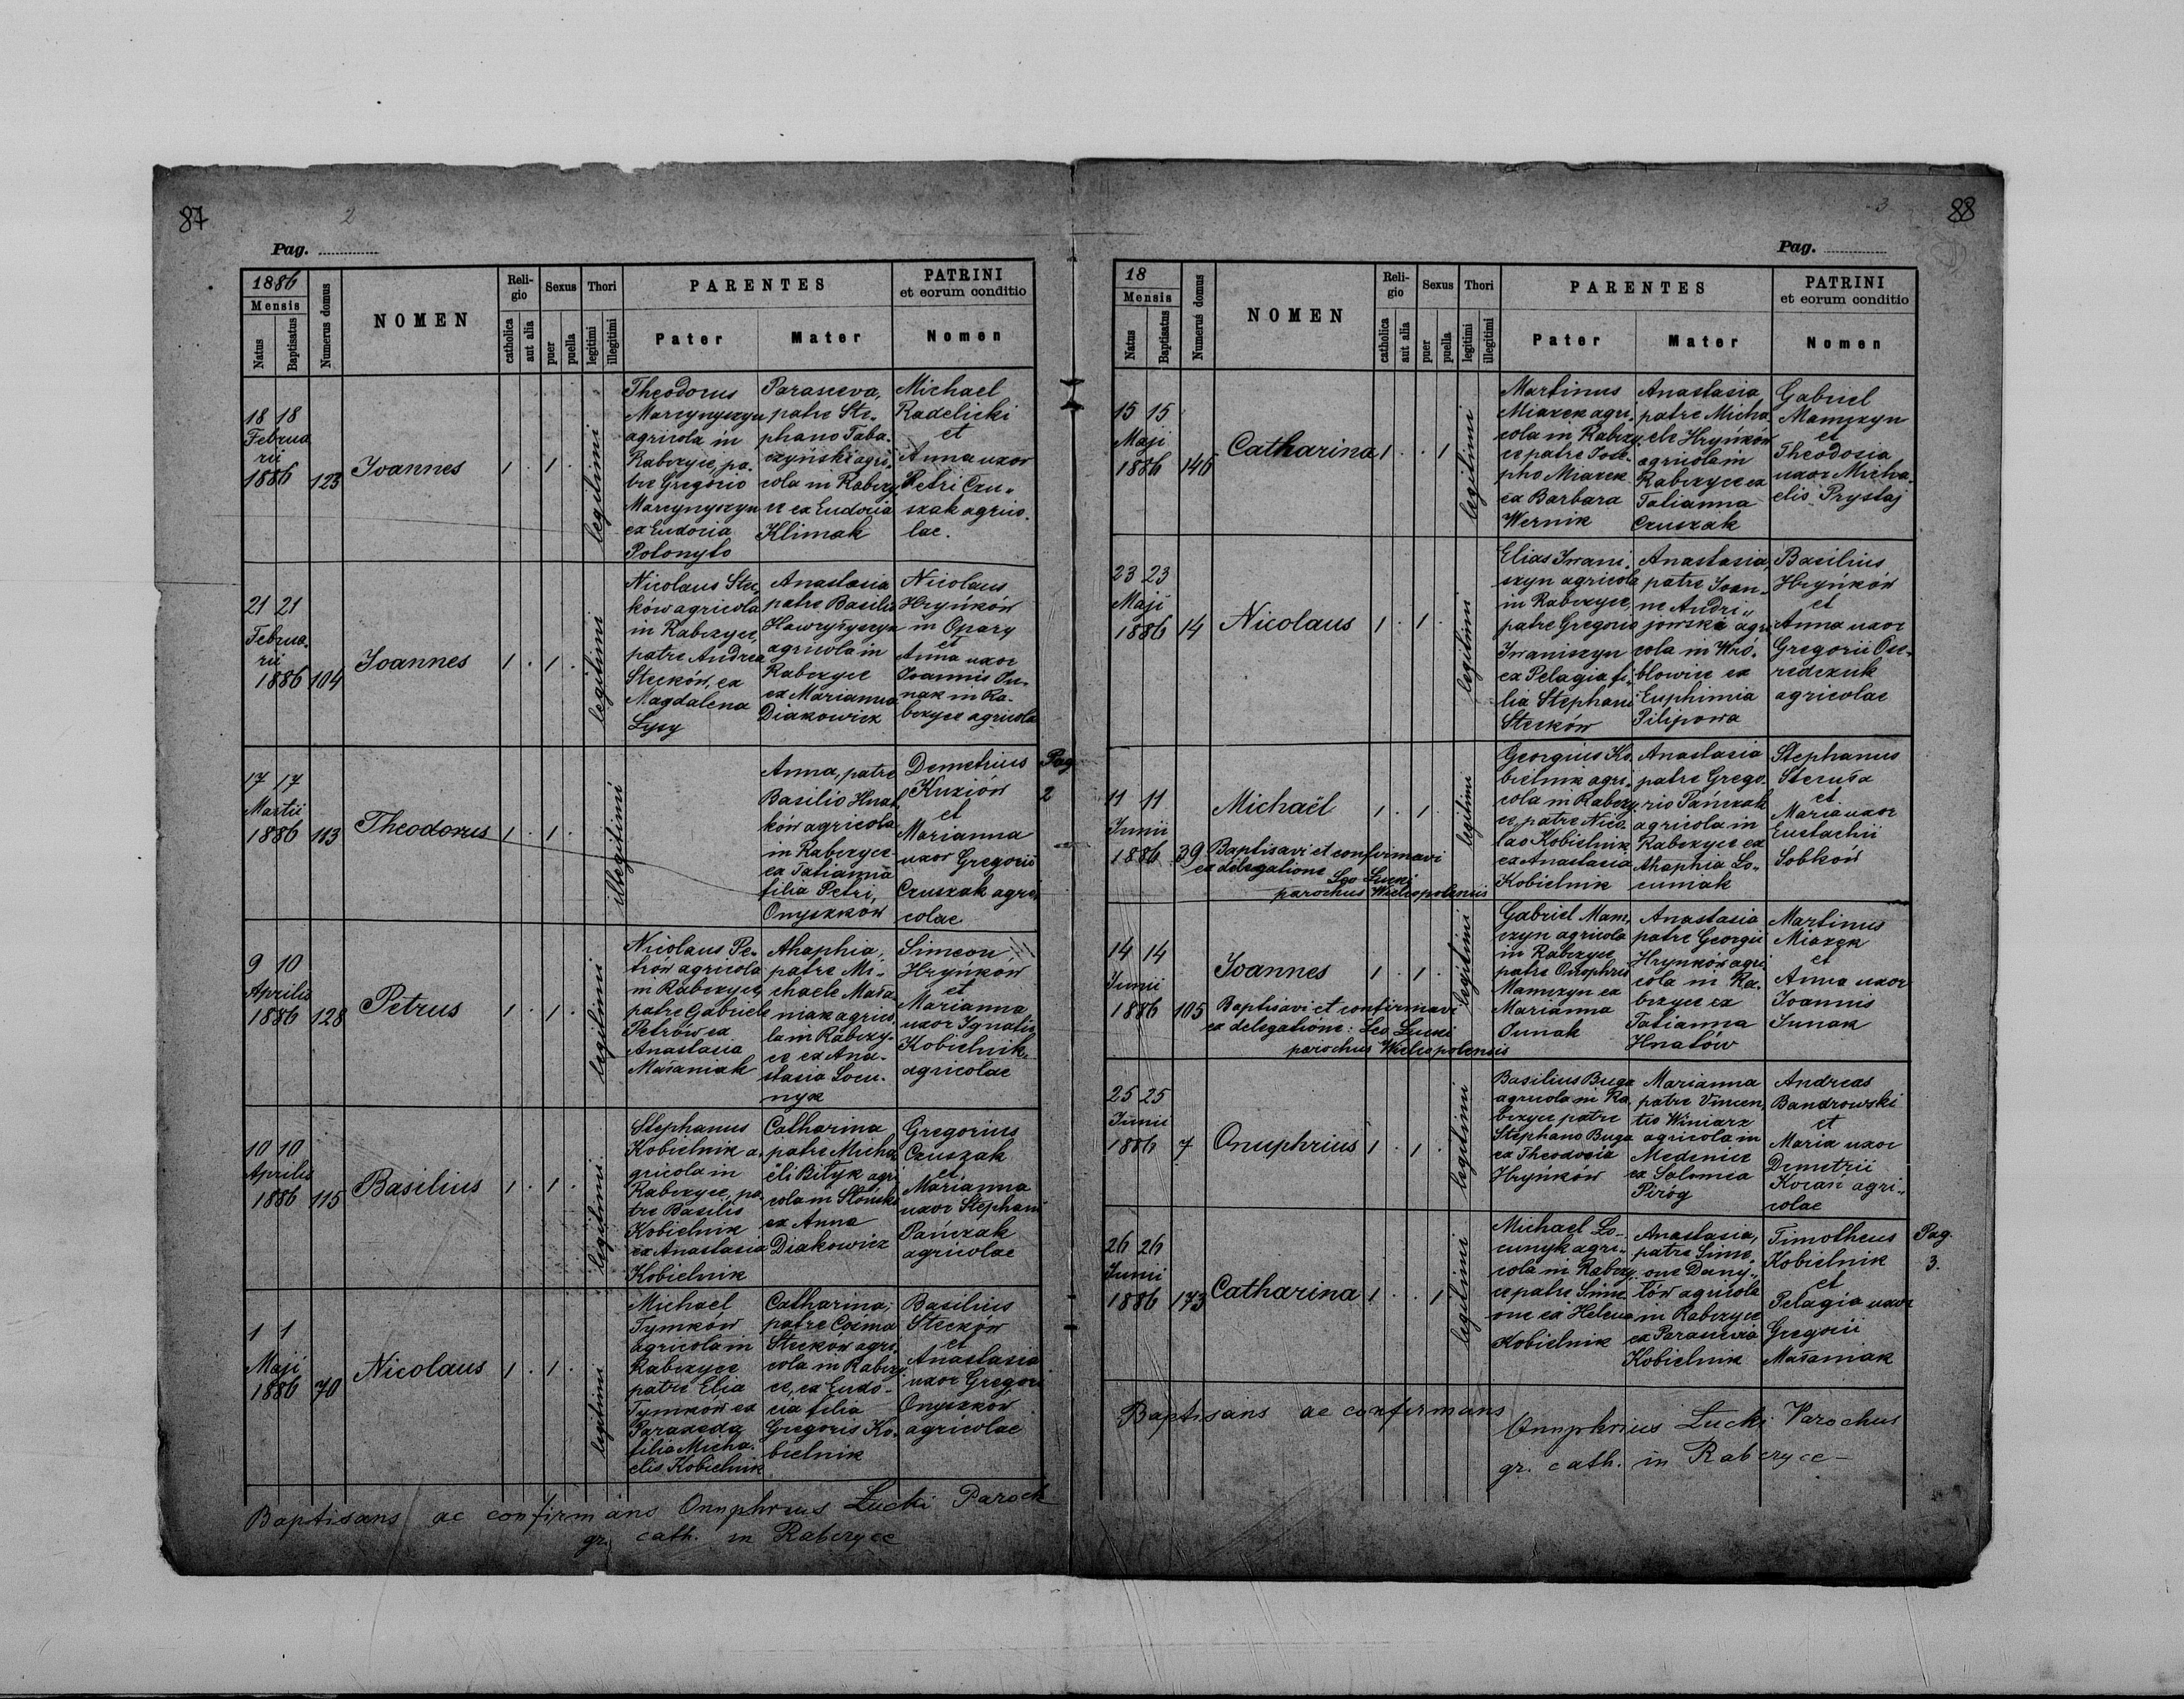 87
2
Pag.
1886
Mensis
Natus
Baptisatus
Numerus domus
NOMEN
Religio
catholica
aut alia
Sexus
puer
puella
Thori
legitimi
illegitimi
PARENTES
Pater
Mater
PATRINI
et eorum conditio
Nomen
18 18
Februa
rii
1886
123
Joannes
1 . 1 .
legitimi
Theodorus
Marcynyszyn
agricola in
Rabczyce, pa-
tre Gregorio
Marcynyszyn
ex Eudocia
Polonyło
Parasceva,
patre Ste-
phano Taba-
czyński agri-
cola in Rabczy
ce ex Eudocia
Klimak
Michael
Radelicki
et
Anna uxor
Petri Czu-
szak agrico-
lae.
21 21
Februa-
rii
1886
104
Joannes
1 . 1 .
legitimi
Nicolaus Stec,
ków agricola
in Rabczyce,
patre Andrea
Stecków, ex
Magdalena
Łysy
Anastasia
patre Basilio
Hawryłyszyn
agricola in
Rabczyce
ex Marianna
Diakowicz
Nicolaus
Hryńków
in Opary
et
Anna uxor
Joannis Ju-
nak in Ra-
bczyce agricola
17 17
Martii
1886
113
Theodorus
1 . 1 .
illegitimi
Anna, patre
Basilio Hnat
ków agricola
in Rabczyce
ex Tatianna
filia Petri,
Onyszków
Demetrius
Kuziów
et
Marianna
uxor Gregorii
Czuszak agri
colae
Pag
2
9 10
Aprilis
1886
128
Petrus
1 . 1 .
legitimi
Nicolaus Pe-
trów agricola
in Rabczyce,
patre Gabriele
Petrów ex
Anastasia
Masaniak
Ahaphia,
patre Mi-
chaele Masa-
niak agrico-
la in Rabczy-
ce ex Ana-
stasia Łocu-
nyk
Simeon
Hryńków
et
Marianna
uxor Ignatii
Kobielnik
agricolae
10 10
Aprilis
1886
115
Basilius
1 . 1 .
legitimi
Stephanus
Kobielnik a-
gricola in
Rabczyce, pa-
tre Basilis
Kobielnik
ex Anastasia
Kobielnik
Catharina
patre Micha
ëli Bityk agri
cola in Słońsko
ex Anna
Diakowicz
Gregorius
Czuszak
et
Marianna
uxor Stephani
Pańczak
agricolae
1 1
Maji
1886
70
Nicolaus
1 . 1 .
legitimi
Michael
Tymków
agricola in
Rabczyce
patre Elia
Tymków ex
Paraxeda
filia Micha-
elis Kobielnik
Catharina,
patre Cosma
Stecków agri-
cola in Rabczy
ce, ex Eudo-
cia filia
Gregoris Ko-
bielnik
Basilius
Stecków
et
Anastasia
uxor Gregori
Onyszków
agricolae
Baptisans ac confirmans Onuphrius Łucki Paroch
gr. cath. in Rabczyce
3
88
Pag.
18
Mensis
Natus
Baptisatus
Numerus domus
NOMEN
Religio
catholica
aut alia
Sexus
puer
puella
Thori
legitimi
illegitimi
PARENTES
Pater
Mater
PATRINI
et eorum conditio
Nomen
15 15
Maji
1886
146
Catharina
1 . . 1
legitimi
Martinus
Miazek agri-
cola in Rabczy-
ce patre Jose-
pho Miazek
ex Barbara
Wernik
Anastasia
patre Micha-
ele Hryńków
agricola in
Rabczyce ex
Tatianna
Czuszak
Gabriel
Mamczyn
et
Theodosia
uxor Micha-
elis Prystaj
23 23
Maji
1886
14
Nicolaus
1 . 1 .
legitimi
Elias Iwani-
szyn agricola
in Rabczyce,
patre Gregorio
Iwaniszyn
ex Pelagia fi-
lia Stephani
Stecków
Anastasia
patre Joan-
ne Andri-
jowski agri
cola in Wró-
blowice ex
Euphimia
Pilipowa
Basilius
Hryńków
et
Anna uxor
Gregorii Ose-
redczuk
agricolae
11 11
Junii
1886
39
Michaël
1 . 1 .
legitimi
Baptisavi et confirmavi
ex delegatione Leo Łucki
parochus Wielopolensis
Georgius Ko-
bielnik agri-
cola in Rabczy-
ce, patre Nico-
lao Kobielnik
ex Anastasia
Kobielnik
Anastasia
patre Grego-
rio Pańczak
agricola in
Rabczyce ex
Ahaphia Ło-
cuniak
Stephanus
Steruła
et
Maria uxor
Eustachii
Sobków
14 14
Junii
1886
105
Joannes
1 . 1 .
legitimi
Baptisavi et confirmavi
ex delegatione: Leo Łucki
parochus Wielopolensis
Gabriel Mam-
czyn agricola
in Rabczyce
patre Onophris
Mamczyn ex
Marianna
Junak
Anastasia
patre Georgii
Hryńków agri
cola in Ra-
bczyce ex
Tatianna
Hnatów
Martinus
Miazek
et
Anna uxor
Joannis
Junak
25 25
Junii
1886
7
Onuphrius
1 . 1 .
legitimi
Basilius Buga
agricola in Ra
bczyce patre
Stephano Buga
ex Theodosia
Hryńków
Marianna
patre Vincen-
tio Winiarz
agricola in
Medenice
ex Salomea
Piróg
Andreas
Bandrowski
et
Maria uxor
Demetrii
Kocań agri-
colae
26 26
Junii
1886
173
Catharina
1 . . 1
legitimi
Michael Ło-
cunyk agri-
cola in Rabczy-
ce patre Sime
one ex Helena
Kobielnik
Anastasia,
patre Sime
one Dany-
tów agricola
in Rabczyce
ex Parasceva
Kobielnik
Timotheus
Kobielnik
et
Pelagia uxor
Gregorii
Masaniak
Pag.
3.
Baptisans ac confirmans
Onuphrius Łucki Parochus
gr. cath. in Rabczyce